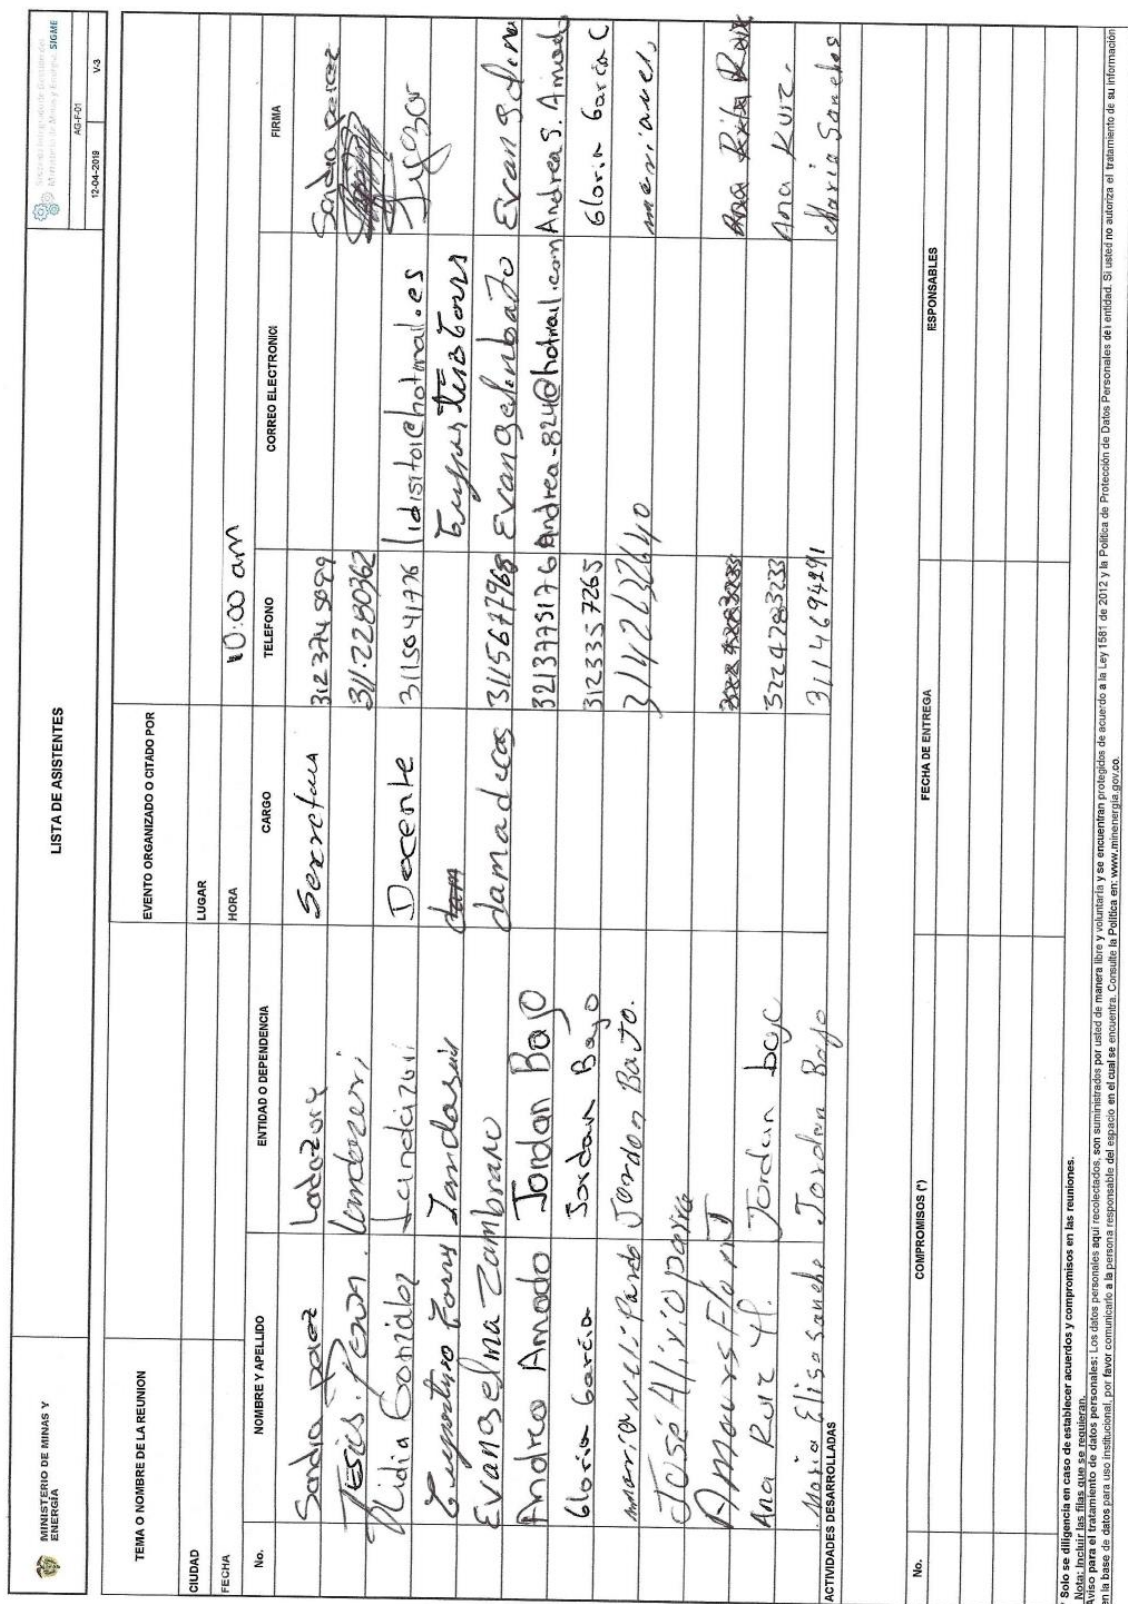 MINISTERIO DE MINAS Y
ENERGÍA
LISTA DE ASISTENTES
Sistema Integrado de Gestión del
Ministerio de Minas y Energía SIGME
AG-F-01
12-04-2019 V-3
TEMA O NOMBRE DE LA REUNION EVENTO ORGANIZADO O CITADO POR
CIUDAD LUGAR
FECHA HORA 10:00 am
No. NOMBRE Y APELLIDO ENTIDAD O DEPENDENCIA CARGO TELEFONO CORREO ELECTRONICI FIRMA
Sandra Paez 312 374 5099 Sandra Paez
Jesús Pena 311.2280362
Lidia González Landázuri Docente 3115041776
Torres
Evangelina Zambrano damadecas 3115677968 Evangelinbajo
Andrea Amado Jordan Bajo 3213775176 Andrea-824@hotmail.com Andrea S. Amado
Gloria García Jordan Bajo 3123357265 Gloria García C
Pardo Jordan Bajo. 3142632640
José Alirio Parra
Ana Ruiz Jordan bajo 3224783233 Ana Ruiz.
Maria Elisa Sanche Jordan Bajo 3114694291 Maria Sanches
ACTIVIDADES DESARROLLADAS
No. COMPROMISOS (*) FECHA DE ENTREGA RESPONSABLES
* Solo se diligencia en caso de establecer acuerdos y compromisos en las reuniones.
Nota: Incluir las filas que se requieran.
Aviso para el tratamiento de datos personales: Los datos personales aquí recolectados, son suministrados por usted de manera libre y voluntaria y se encuentran protegidos de acuerdo a la Ley 1581 de 2012 y la Política de Protección de Datos Personales de l entidad. Si usted no autoriza el tratamiento de su información
en la base de datos para uso institucional, por favor comunicarlo a la persona responsable del espacio en el cual se encuentra. Consulte la Política en: www.minenergia.gov.co.